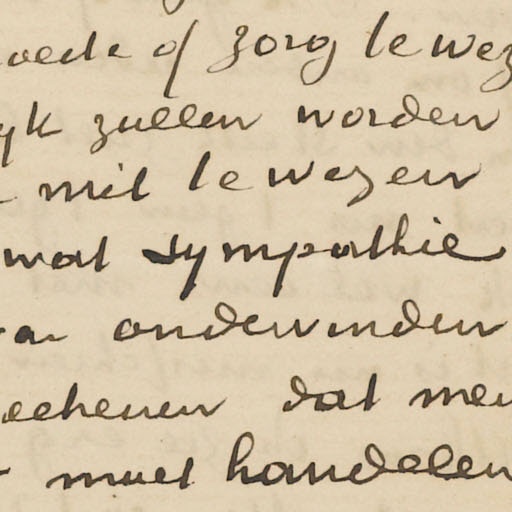 oede of zorg te wez
yk zullen worden
mil te wezen
wat sympathie
van ondervinden
eekenen dat men
moet handelen